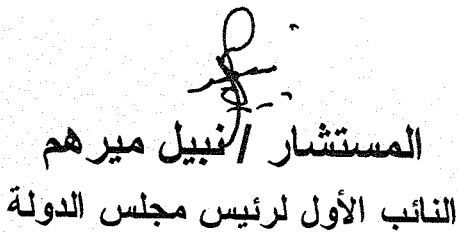 المستشار / نبيل ميرهم
النائب الأول لرئيس مجلس الدولة